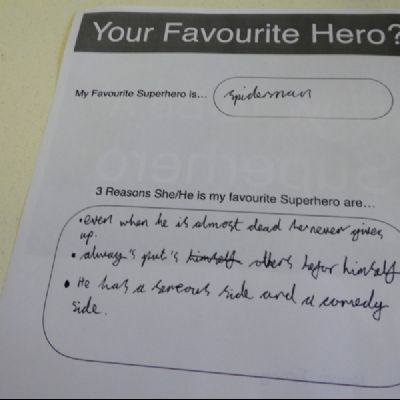 Your Favourite Hero?
My Favourite Superhero is...
spiderman
3 Reasons She/He is my favourite Superhero are...
•even when he is almost dead he never gives
up.
• always put's himself others befor himself
• He has a sereous side and a comedy
side.